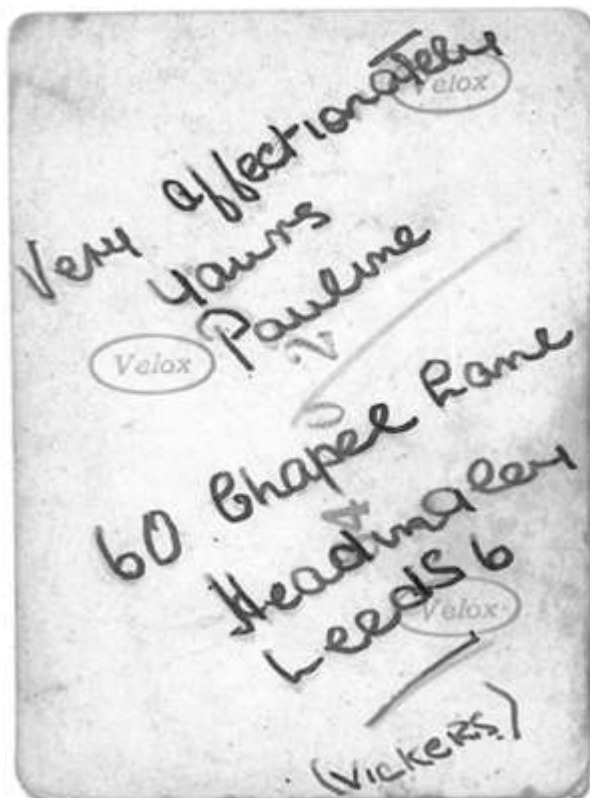 Very affectionately
Yours
Pauline
60 Chapel Lane
Headingley
Leeds 6
(VICKERS.)
Velox
Velox
Velox